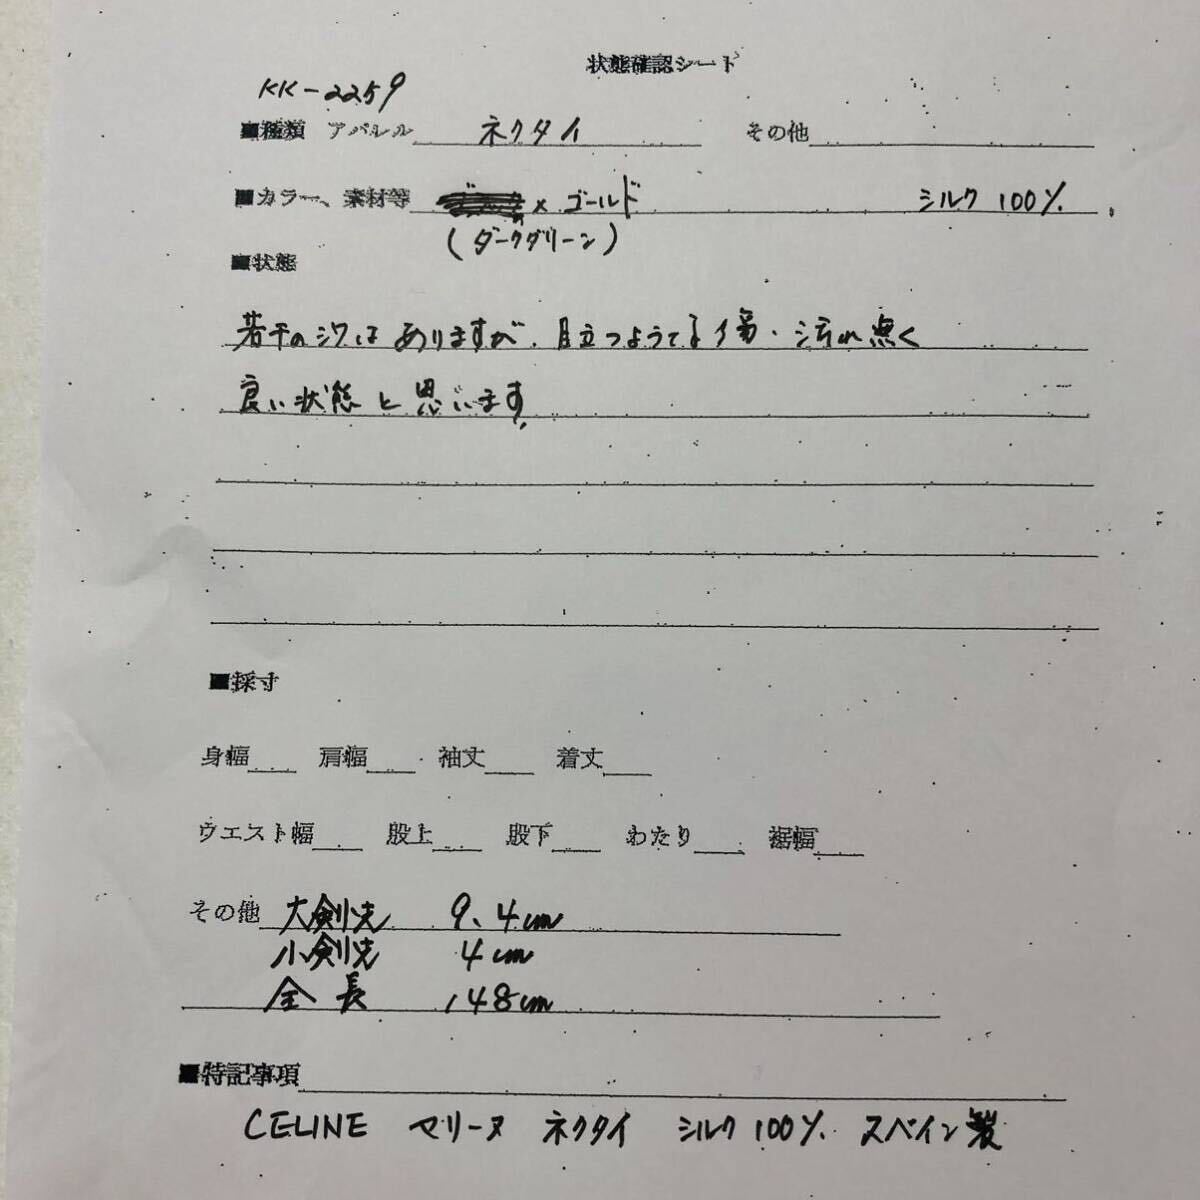 状態確認シート
KK-2259
■種類 アパレル ネクタイ その他
■カラー、素材等 × ゴールド シルク 100%
(ダークグリーン)
■状態
若干のシワはありますが、目立つようてる傷・汚れ無く
良い状態と思います。
■採寸
身幅 肩幅 袖丈 着丈
ウエスト幅 股上 股下 わたり 裾幅
その他 大剣先 9.4cm
小剣先 4cm
全長 148cm
■特記事項
CELINE マリーヌ ネクタイ シルク100% スペイン製